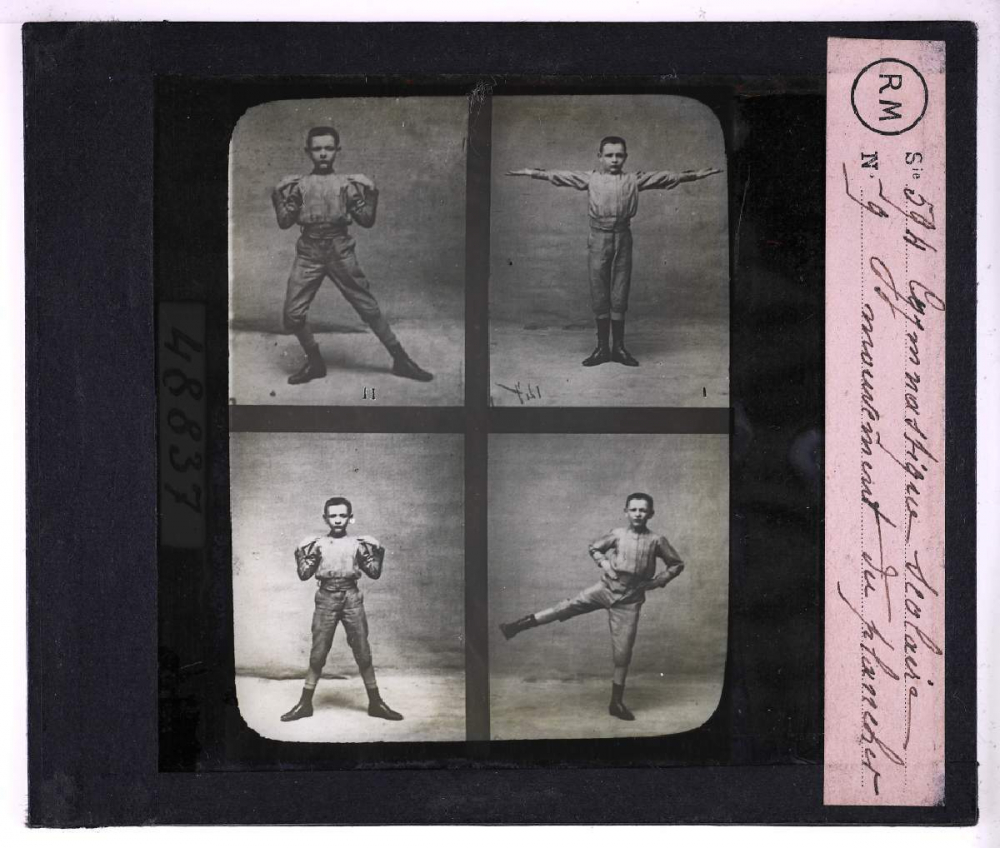 RM
Sie 594 Gymnastique scolaire
N. 9 mouvement du plancher
48837
11
1